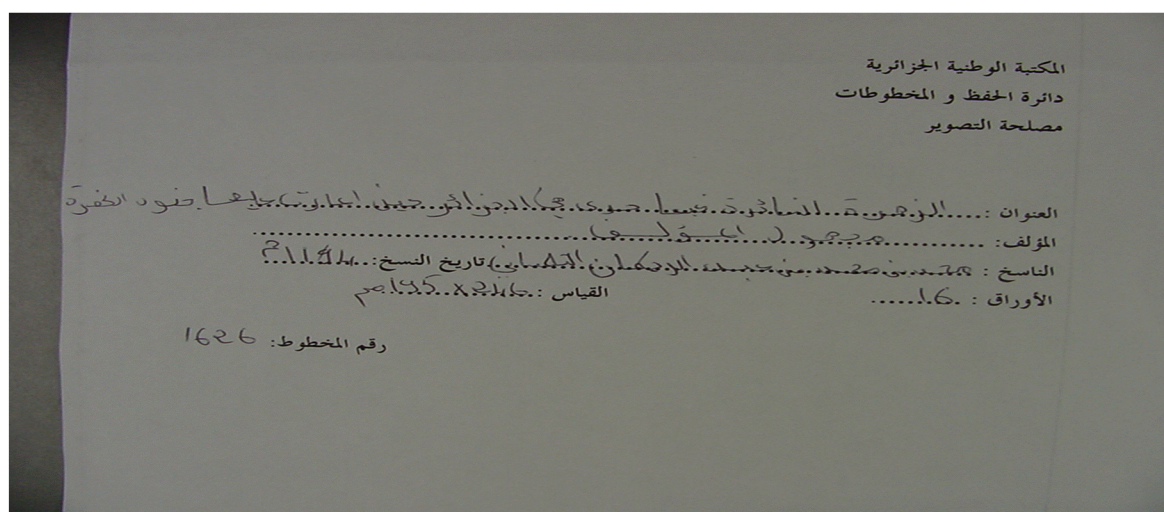 المكتبة الوطنية الجزائرية
دائرة الحفظ و المخطوطات
مصلحة التصوير
العنوان :.... الزهرة النائرة فيما جرى في الجزائر حين اغارت عليها جنود الكفرة
المؤلف: ........... مجهول المؤلف ...........
الناسخ : محمد بن محمد بن عبد الرحمان التلمساني تاريخ النسخ:
الأوراق : .16...... القياس : 195x244 مم
رقم المخطوط: 1626